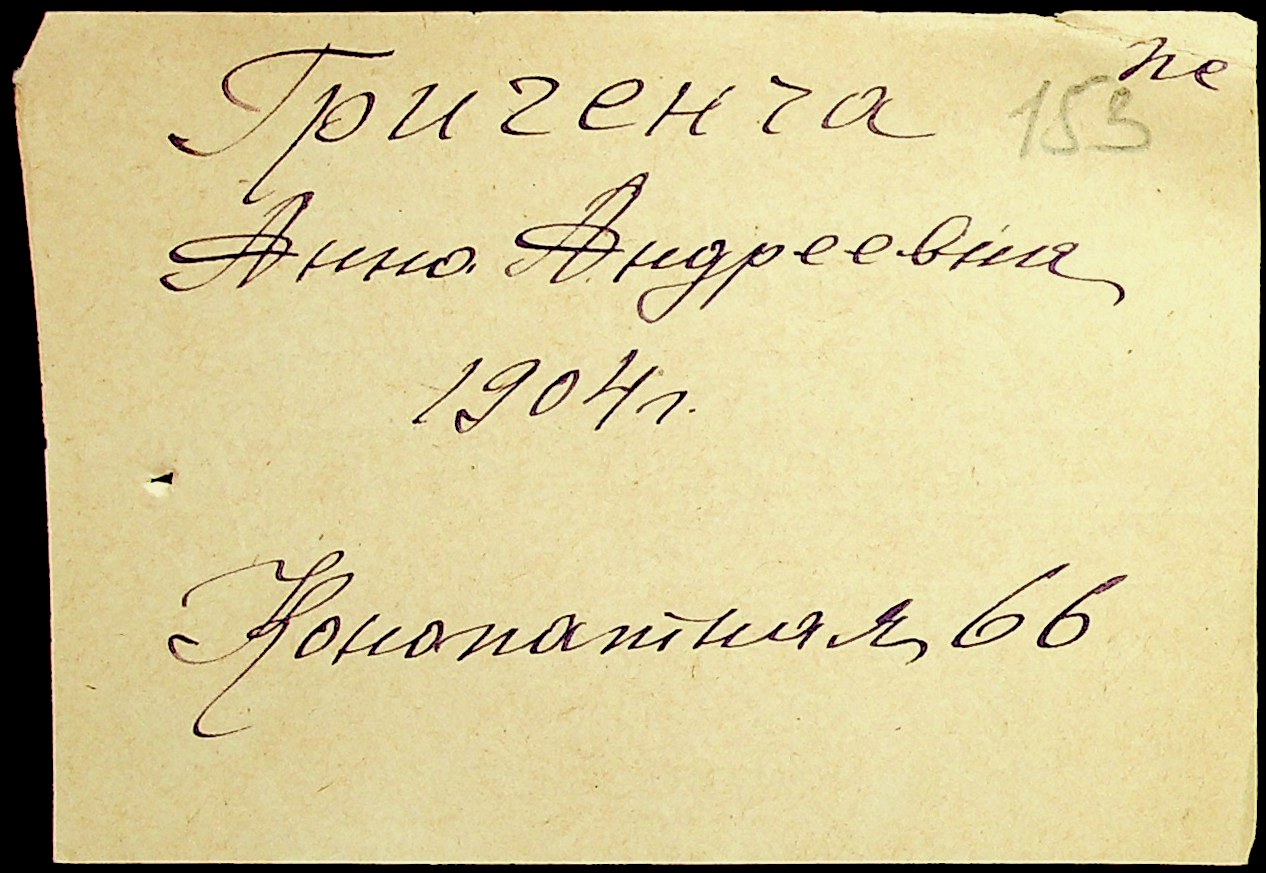 Григенча 153 не
Анна Андреевна
1904 г.
Конопатная 66